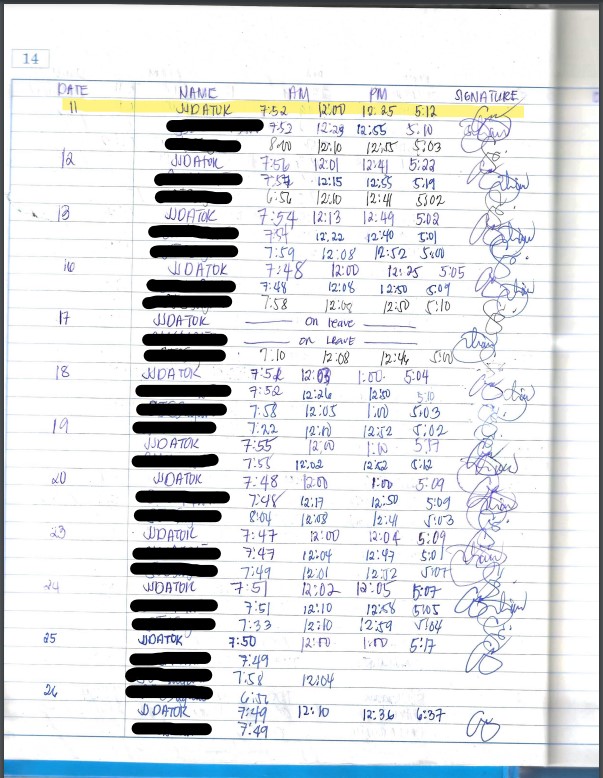 14
DATE NAME AM PM SIGNATURE
11 JJDATOK 7:52 12:00 12:25 5:12
7:52 12:29 12:55 5:10
8:00 12:10 12:55 5:03
12 JJDATOK 7:56 12:01 12:41 5:22
7:57 12:15 12:55 5:19
6:56 12:10 12:41 5:02
13 JJDATOK 7:54 12:13 12:49 5:02
7:51 12:22 12:40 5:01
7:59 12:08 12:52 5:00
16 JJDATOK 7:48 12:00 12:25 5:05
7:48 12:08 12:50 5:09
7:58 12:08 12:50 5:10
17 JJDATOK on leave
on LEAVE
7:10 12:08 12:46 5:00
18 JJDATOK 7:52 12:03 1:00 5:04
7:52 12:26 12:50 5:10
7:58 12:05 1:00 5:03
19 7:22 12:10 12:52 5:02
JJDATOK 7:55 12:00 1:10 5:17
7:55 12:02 12:52 5:12
20 JJDATOK 7:48 12:00 1:00 5:09
7:48 12:17 12:50 5:09
8:04 12:08 12:41 5:03
23 JJDATOK 7:47 12:00 12:04 5:09
7:47 12:04 12:47 5:01
7:49 12:01 12:52 5:07
24 JJDATOK 7:51 12:02 12:05 5:07
7:51 12:10 12:58 5:05
7:33 12:10 12:59 5:04
25 JJDATOK 7:50 12:00 1:00 5:17
7:49
7:58 12:04
26 6:56
JJDATOK 7:49 12:10 12:36 6:37
7:49